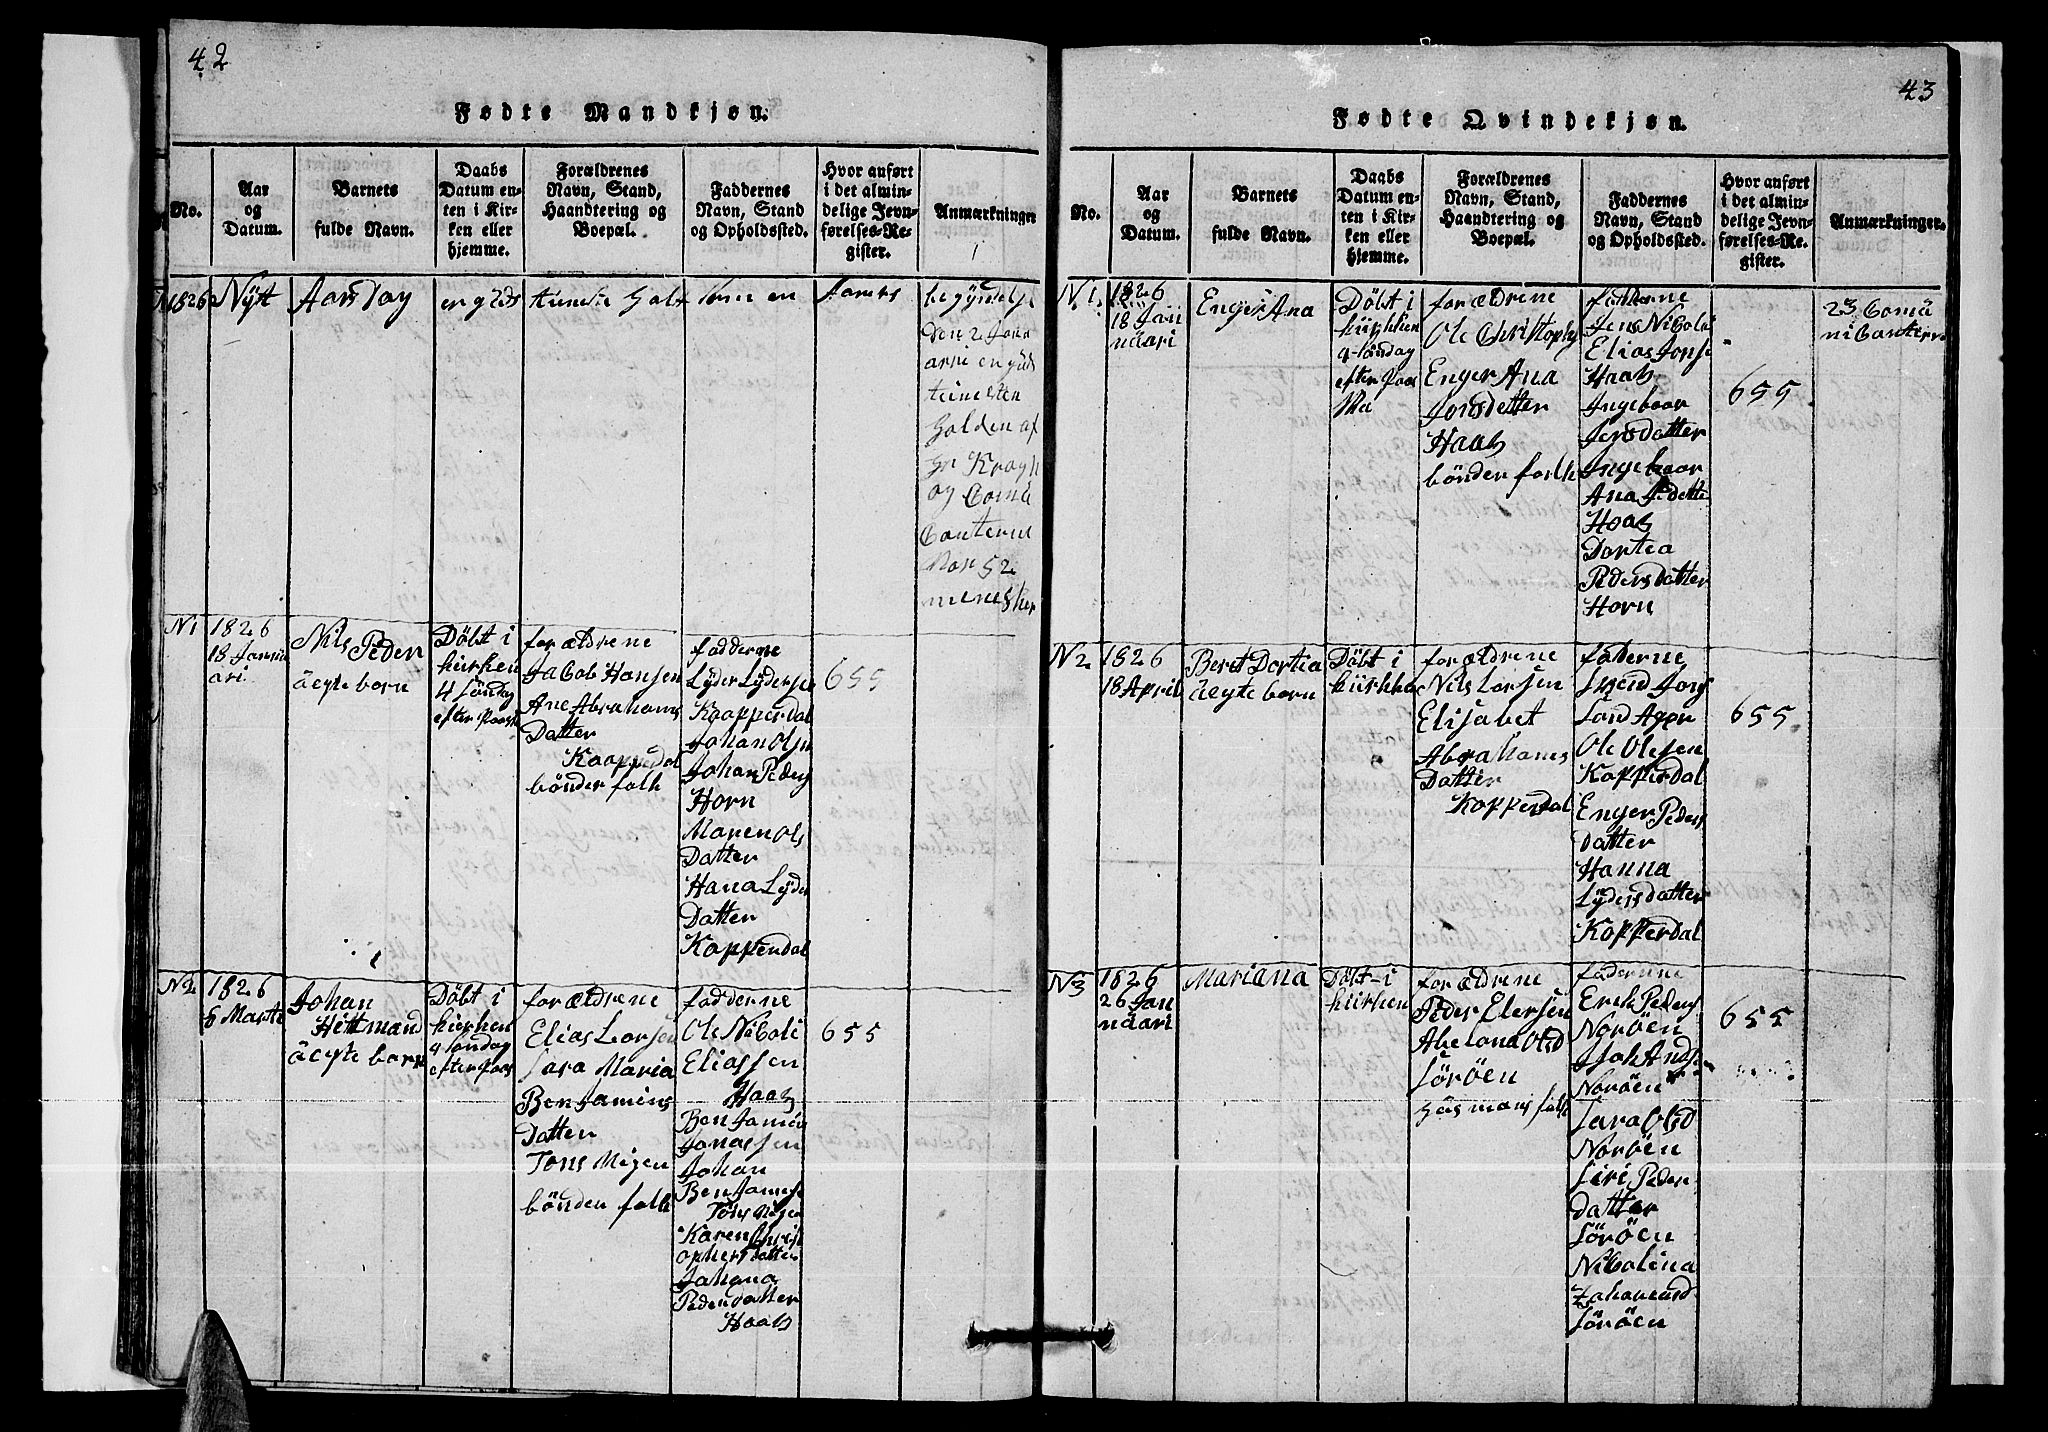 42
Fødte Mandkjøn.
No.
Aar
og
Datum.
Barnets
fulde Navn.
Daabs
Datum en-
ten i Kir-
ken eller
hjemme.
Forældrenes
Navn, Stand,
Haandtering og
Boepæl.
Faddernes
Navn, Stand
og Opholdssted.
Hvor anført
i det almin-
delige Jevn-
førelses-Re-
gister.
Anmærkninger
1826 Nÿtt Aars Dag er guds tineste Halt some en Aarets begÿndelse
den 2 Janu
arri en guds
tinesten
Holden af
Hr Kragh
og Comu
Canterne
Var 52
menesker
N1
1826
18 Januu
ari
Nils Peder
äegte born
Döbt i
kirken
4 Söndag
efter Paaske
forældrene
Jacob Hansen
Ane Abrahams
Datter
Kaapperdal
bönder folk
fadderne
Lÿder Lÿdersen
Kaapperdal
Johan Olsen
Johan Peders
Horn
Maren Ols
Datter
Hana Lÿder
Datter
Kapperdal
655
N2
1826
8 Marti
Johan
Hittmand
äegte born
Döbt i
kirken
4 Söndag
efter Paas
forældrene
Elias Larsen
Sara Maria
Benjamins
Datter
Tons Migen
bönder folk
fadderne
Ole Nicoli
Eliassen
Haab
Benjamin
Jonassen
Johan
Benjamins
Tons Migen
Karen Christ
ophers Datter
Johana
Peder datter
Haab
655
43
Fødte Qvindekjøn.
No.
Aar
og
Datum.
Barnets
fulde Navn.
Daabs
Datum en-
ten i Kir-
ken eller
hjemme.
Forældrenes
Navn, Stand,
Haandtering og
Boepæl.
Faddernes
Navn, Stand
og Opholdssted.
Hvor anført
i det almin-
delige Jevn-
førelses-Re-
gister.
Anmærkninger.
N1.
1826
18 Jan
nuari
Enger Ana
Döbt i
kirkken
4-Söndag
efter Paas
ka
forældrene
Ole Christophs
Enger Ana
Jonsdatter
Haab
bönder folk
fadderne
Jens Nicolai
Elias Jonse
Haab
Ingebaar
Jensdatter
Ingebaar
Ana datte
Haab
Dortea
Pedersdatter
Horn
655
23 Comu
nicanterre
N2
1826
18 April
Beret Dortea
äegte born
Döbt i
kirkke
forældrene
Nils Larsen
Elisabet
Abrahams
Datter
Kapperdal
faderne
Svend Jons
Sand Ager
Ole Olesen
Kapperdal
Enger Peders
Datter
Hanna
Lÿdersdatter
Kapperdal
655
N3
1826
26 Jan
nuari
Mariana
Döbt-i
kirken
forældrene
Peder Elersen
Abelona Olsd
Söröen
Husmans folk
faderne
Erik Peders
Noröen
Joh Ands
Noröen
Sara Olsd
Noröen
Siri Peders
datter
Söröen
Nicolina
Zakariasd
Söröen
655